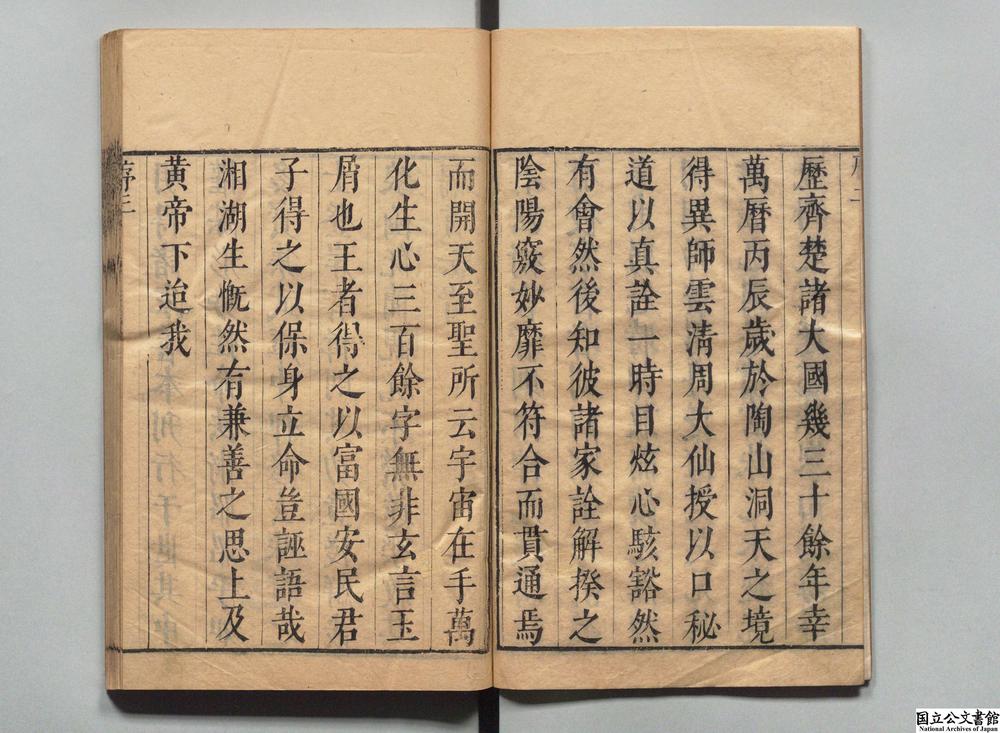 歷齊楚諸大國幾三十餘年幸
萬曆丙辰歲於陶山洞天之境
得異師雲清周大仙授以口秘
道以真詮一時目炫心駭豁然
有會然後知彼諸家詮解揆之
陰陽竅妙靡不符合而貫通焉
而開天至聖所云宇宙在手萬
化生心三百餘字無非玄言玉
屑也王者得之以富國安民君
子得之以保身立命豈誣語哉
湘湖生慨然有兼善之思上及
黃帝下迨我
序三
国立公文書館
National Archives of Japan